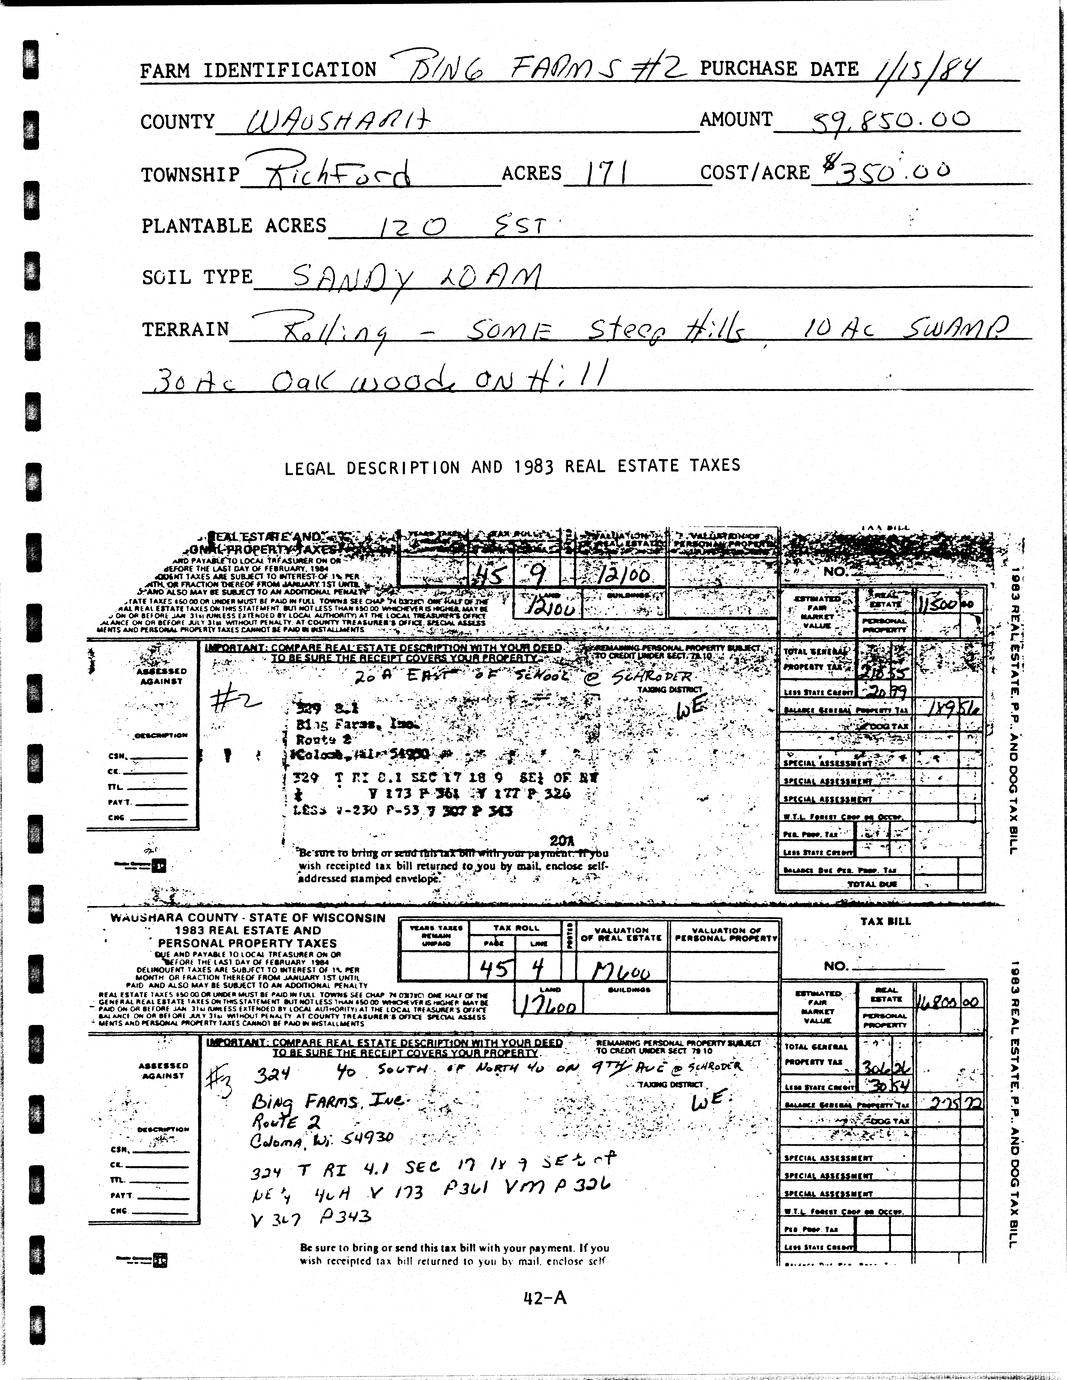 FARM IDENTIFICATION BING FARMS #2 PURCHASE DATE 1/15/84
COUNTY WAUSHARA AMOUNT 59,850.00
TOWNSHIP RichFord ACRES 171 COST/ACRE $350.00
PLANTABLE ACRES 120 EST
SOIL TYPE SANDY LOAM
TERRAIN Rolling - SOME Steep Hills, 10 Ac SWAMP
30 Ac Oak woods ON Hill
LEGAL DESCRIPTION AND 1983 REAL ESTATE TAXES
TAX BILL
REAL ESTATE AND
PROPERTY TAXES
AND PAYABLE TO LOCAL TREASURER ON OR
BEFORE THE LAST DAY OF FEBRUARY, 1984
TAXES ARE SUBJECT TO INTEREST OF 1% PER
OR FRACTION THEREOF FROM JANUARY 1ST UNTIL
AND ALSO MAY BE SUBJECT TO AN ADDITIONAL PENALTY
TAX ROLL
VALUATION OF REAL ESTATE
VALUATION OF PERSONAL PROPERTY
45 9 12100
LAND 12100 BUILDINGS
NO.
ESTIMATED FAIR MARKET VALUE
REAL ESTATE 11500 00
PERSONAL PROPERTY
MENTS AND PERSONAL PROPERTY TAXES CANNOT BE PAID IN INSTALLMENTS
IMPORTANT: COMPARE REAL ESTATE DESCRIPTION WITH YOUR DEED
TO BE SURE THE RECEIPT COVERS YOUR PROPERTY
REMAINING PERSONAL PROPERTY SUBJECT
TO CREDIT UNDER SECT. 79.10
TOTAL GENERAL PROPERTY TAX 210 55
LESS STATE CREDIT 20 99
BALANCE GENERAL PROPERTY TAX 189 56
DOG TAX
SPECIAL ASSESSMENT
SPECIAL ASSESSMENT
SPECIAL ASSESSMENT
W.T.L. FOREST CROP OR OCCUP.
PER. PROP. TAX
LESS STATE CREDIT
BALANCE DUE PER. PROP. TAX
TOTAL DUE
ASSESSED AGAINST
20 A EAST OF SCHOOL @ SCHRODER
#2
TAXING DISTRICT
WE
329 8.1
Bing Farms, Inc.
Route 2
Coloma, Wi. 54930
DESCRIPTION
CSH.
CK.
TTL.
PAY'T.
CHG.
329 T RI 8.1 SEC 17 18 9 SE¼ OF NW
¼ V 173 P 361 V 177 P 326
LESS V-230 P-53 V 307 P 343
20A
Be sure to bring or send this tax bill with your payment. If you
wish receipted tax bill returned to you by mail, enclose self-
addressed stamped envelope.
1983 REAL ESTATE, P.P., AND DOG TAX BILL
WAUSHARA COUNTY - STATE OF WISCONSIN
1983 REAL ESTATE AND
PERSONAL PROPERTY TAXES
DUE AND PAYABLE TO LOCAL TREASURER ON OR
BEFORE THE LAST DAY OF FEBRUARY, 1984
DELINQUENT TAXES ARE SUBJECT TO INTEREST OF 1% PER
MONTH OR FRACTION THEREOF FROM JANUARY 1ST UNTIL
PAID AND ALSO MAY BE SUBJECT TO AN ADDITIONAL PENALTY
REAL ESTATE TAXES $50.00 OR UNDER MUST BE PAID IN FULL
GENERAL REAL ESTATE TAXES ON THIS STATEMENT BUT NOT LESS THAN $50.00 WHICHEVER IS HIGHER, MAY BE
PAID ON OR BEFORE JAN 31st (UNLESS EXTENDED BY LOCAL AUTHORITY) AT THE LOCAL TREASURER'S OFFICE
BALANCE ON OR BEFORE JULY 31st WITHOUT PENALTY, AT COUNTY TREASURER'S OFFICE SPECIAL ASSESS
MENTS AND PERSONAL PROPERTY TAXES CANNOT BE PAID IN INSTALLMENTS
YEARS TAXES REMAIN UNPAID
TAX ROLL
PAGE LINE POSTED
VALUATION OF REAL ESTATE
VALUATION OF PERSONAL PROPERTY
45 4 17600
LAND 17600 BUILDINGS
TAX BILL
NO.
ESTIMATED FAIR MARKET VALUE
REAL ESTATE 16800 00
PERSONAL PROPERTY
IMPORTANT: COMPARE REAL ESTATE DESCRIPTION WITH YOUR DEED
TO BE SURE THE RECEIPT COVERS YOUR PROPERTY.
REMAINING PERSONAL PROPERTY SUBJECT
TO CREDIT UNDER SECT 79.10
TOTAL GENERAL PROPERTY TAX 306 26
LESS STATE CREDIT 30 54
BALANCE GENERAL PROPERTY TAX 275 72
DOG TAX
SPECIAL ASSESSMENT
SPECIAL ASSESSMENT
SPECIAL ASSESSMENT
W.T.L. FOREST CROP OR OCCUP.
PER PROP. TAX
LESS STATE CREDIT
ASSESSED AGAINST
#3 324 40 SOUTH OF NORTH 40 ON 9TH AVE @ SCHRODER
TAXING DISTRICT
WE
BING FARMS, Inc.
ROUTE 2
COLOMA, Wi. 54930
DESCRIPTION
CSH.
CK.
TTL.
PAY'T.
CHG.
324 T RI 4.1 SEC 17 18 9 SE¼ of
NE¼ 40A V 173 P361 V177 P 326
V 307 P343
Be sure to bring or send this tax bill with your payment. If you
wish receipted tax bill returned to you by mail, enclose self-
1983 REAL ESTATE, P.P., AND DOG TAX BILL
42-A